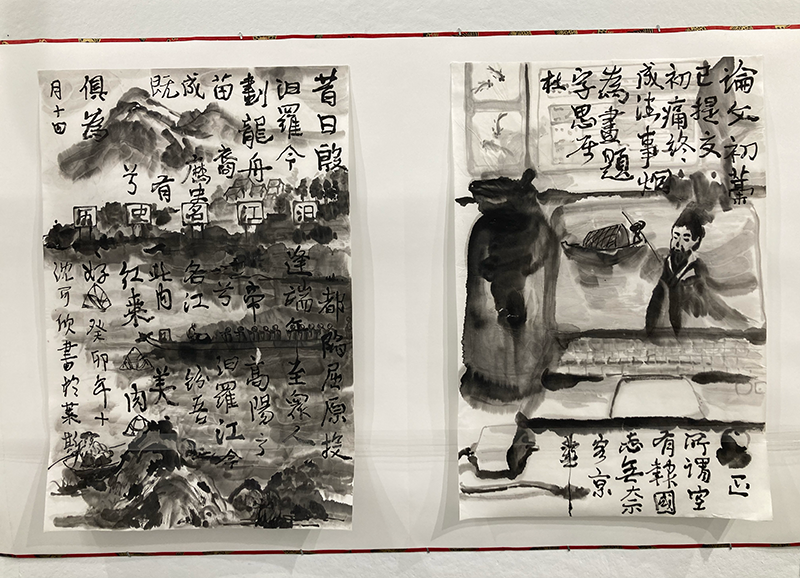 論文初藁
已提交
初痛終
成法事烟
為畫題
字思
杜
正
所謂空
有報國
志無奈
客京
昔日殷都陷屈原投
汨羅今逢端午至眾人
劃龍舟帝高陽之
苗裔兮汨羅江兮
成名江紛吾
既有此內美
兮紅棗肉
俱為好癸卯年十
月十四沈可欣書於萊斯
汨
江
史